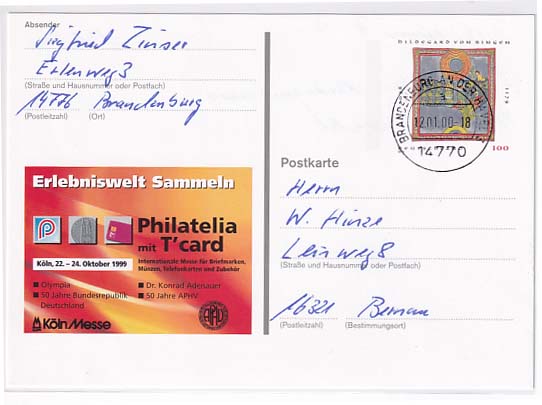 Absender
Siegfried Zinser
Erlenweg 3
(Straße und Hausnummer oder Postfach)
14776 Brandenburg
(Postleitzahl) (Ort)
HILDEGARD VON BINGEN
1179
100
BRANDENBURG AN DER HAVEL
12.01.00-18
14770
Erlebniswelt Sammeln
Philatelia
mit T'card
Köln, 22. – 24. Oktober 1999
Internationale Messe für Briefmarken,
Münzen, Telefonkarten und Zubehör
Olympia
50 Jahre Bundesrepublik
Deutschland
Dr. Konrad Adenauer
50 Jahre APHV
KölnMesse
APHV
Postkarte
Herrn
W. Hinze
Leinweg 8
(Straße und Hausnummer oder Postfach)
16321 Bernau
(Postleitzahl) (Bestimmungsort)